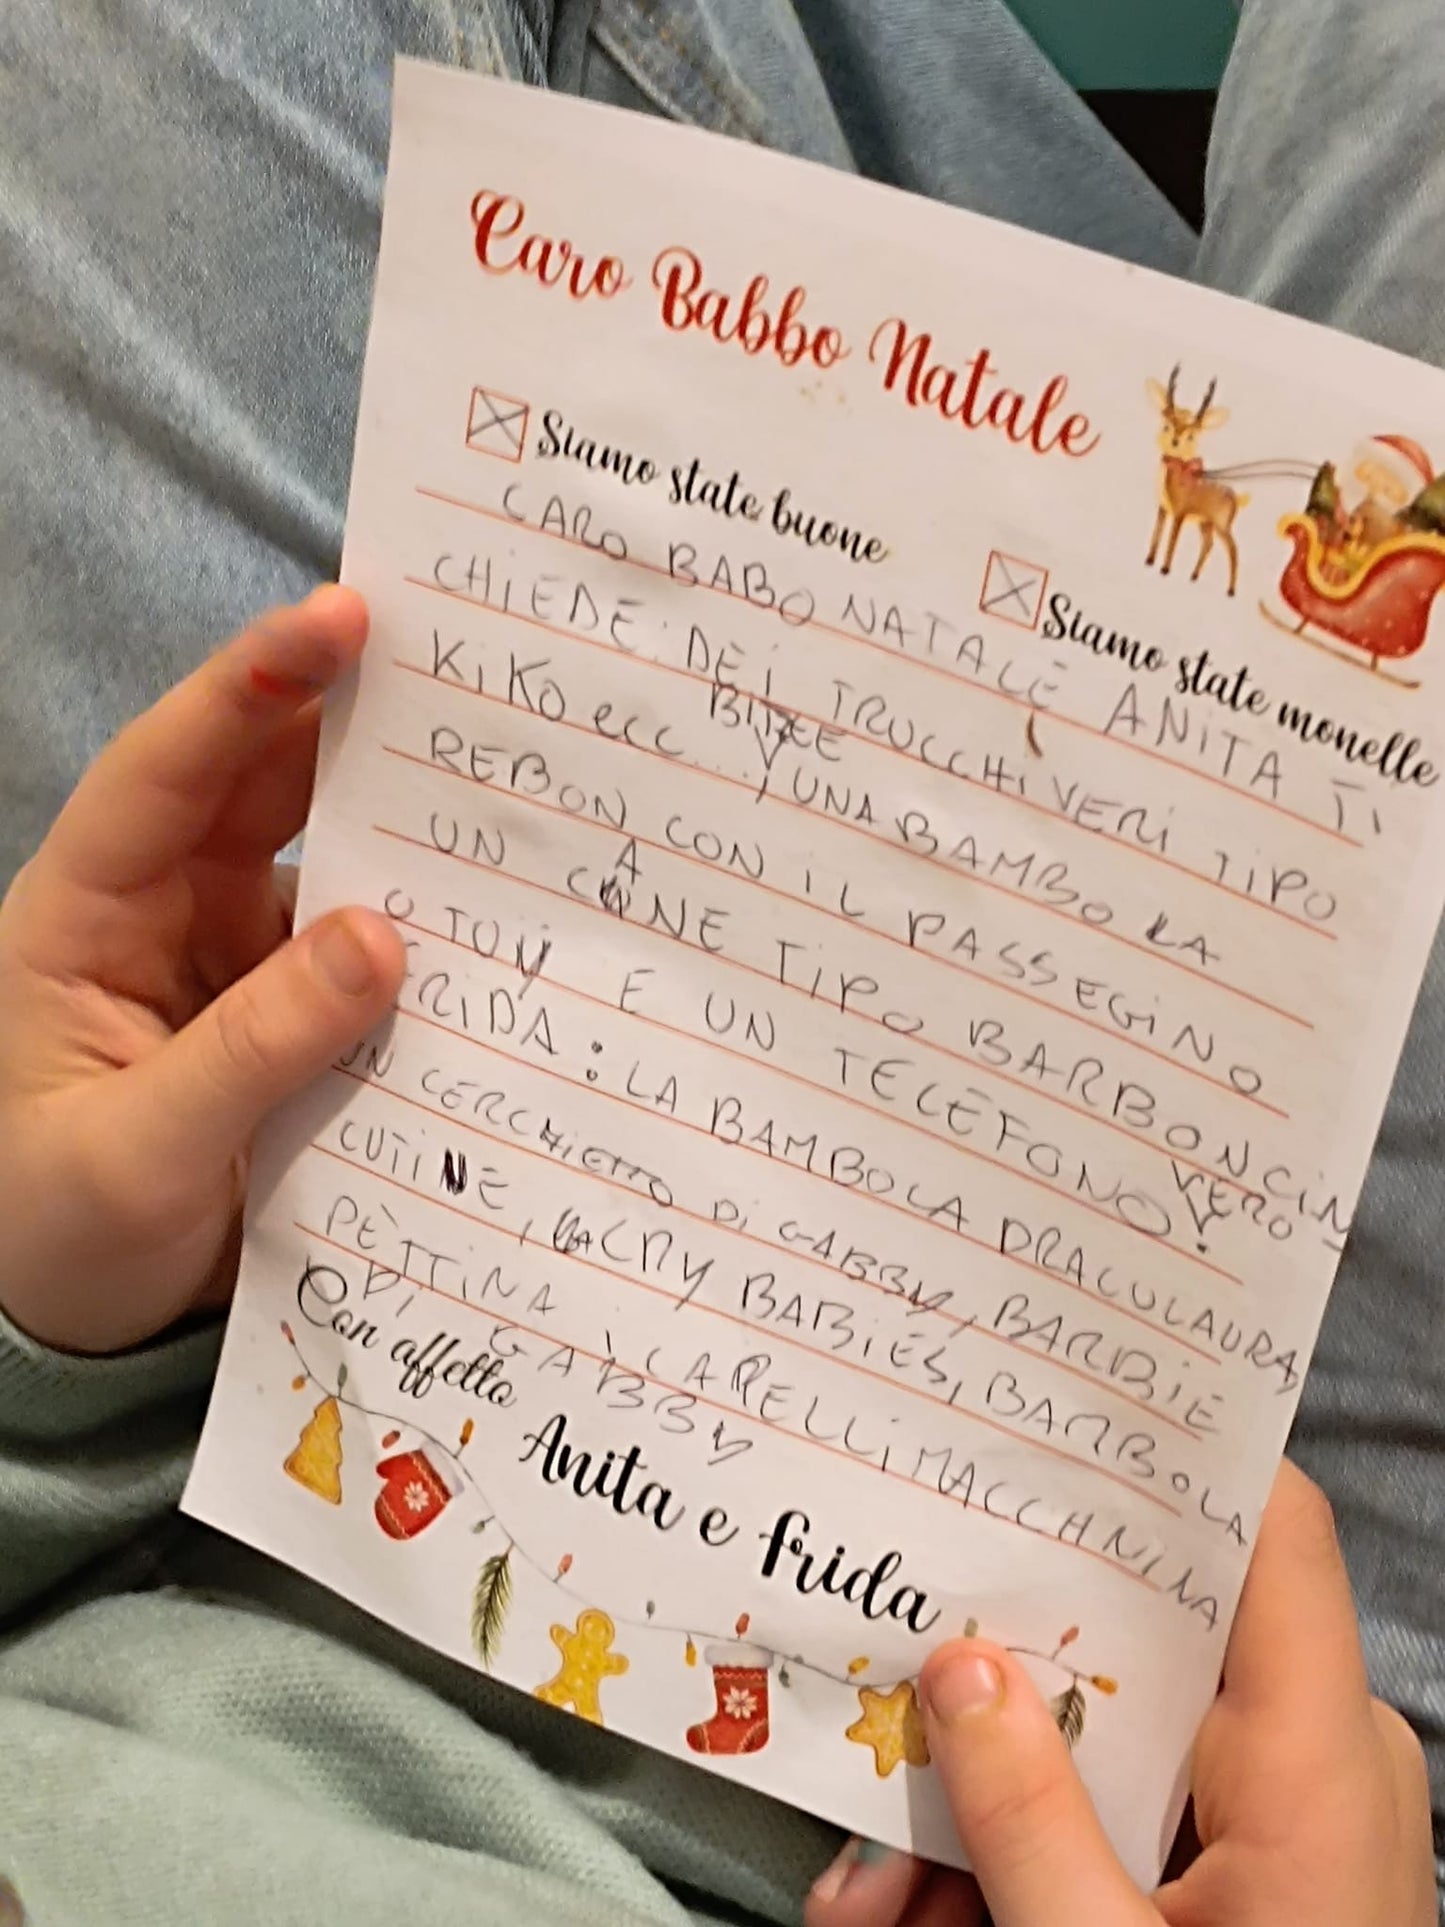 Caro Babbo Natale
Siamo state buone
Siamo state monelle
CARO BABBO NATALE ANITA TI
CHIEDE: DEI TRUCCHI VERI TIPO
KIKO ecc...., UNA BAMBOLA
REBON CON IL PASSEGINO
UN CANE TIPO BARBONCIN
O TOY E UN TELEFONO VERO!
FRIDA: LA BAMBOLA DRACULAURA,
UN CERCHIETTO DI GABBY, BARBIE
CUTINE, CRY BABIES, BAMBOLA
PETTINA I CAPELLI MACCHNINA
DI GABBY
Con affetto
Anita e Frida